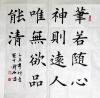 筆若隨心
神則遠人
唯無欲品
能清